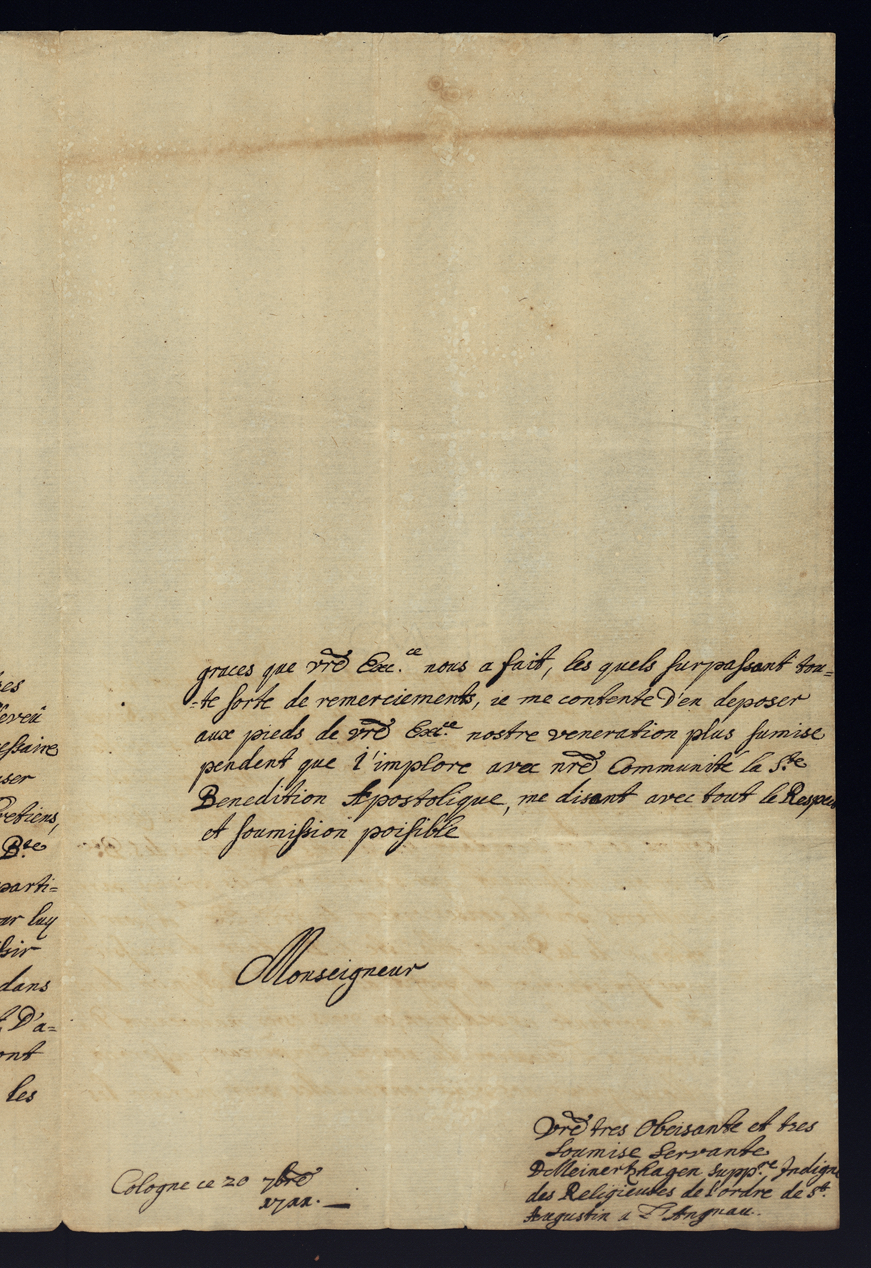 les
parti=
luy
dans
D'a=
ont
les
graces que vrẽ Exc.ce nous a fait, les quels surpassant tou=
=te sorte de remerciements, ie me contente D'en deposer
aux pieds de vrẽ Exce nostre veneration plus sumise
pendent que i'implore avec nrẽ Communité la Ste
Benedition Apostolique, me disant avec tout le Respect
et soumission poisible
Monseigneur
Vrẽ tres Obeisante et tres
Soumise Servante
D Meinertzhagen Suppre Indigne
des Religieuses de l'ordre de St
Augustin a
Cologne ce 20 7brẽ